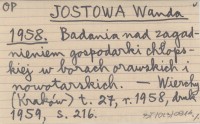 OP
JOSTOWA Wanda
1958. Badania nad zagad-
nieniem gospodarki chłops-
kiej w borach orawskich i
nowotarskich. — Wierchy
(Kraków) t. 27, r. 1958, druk
1959, s. 216.